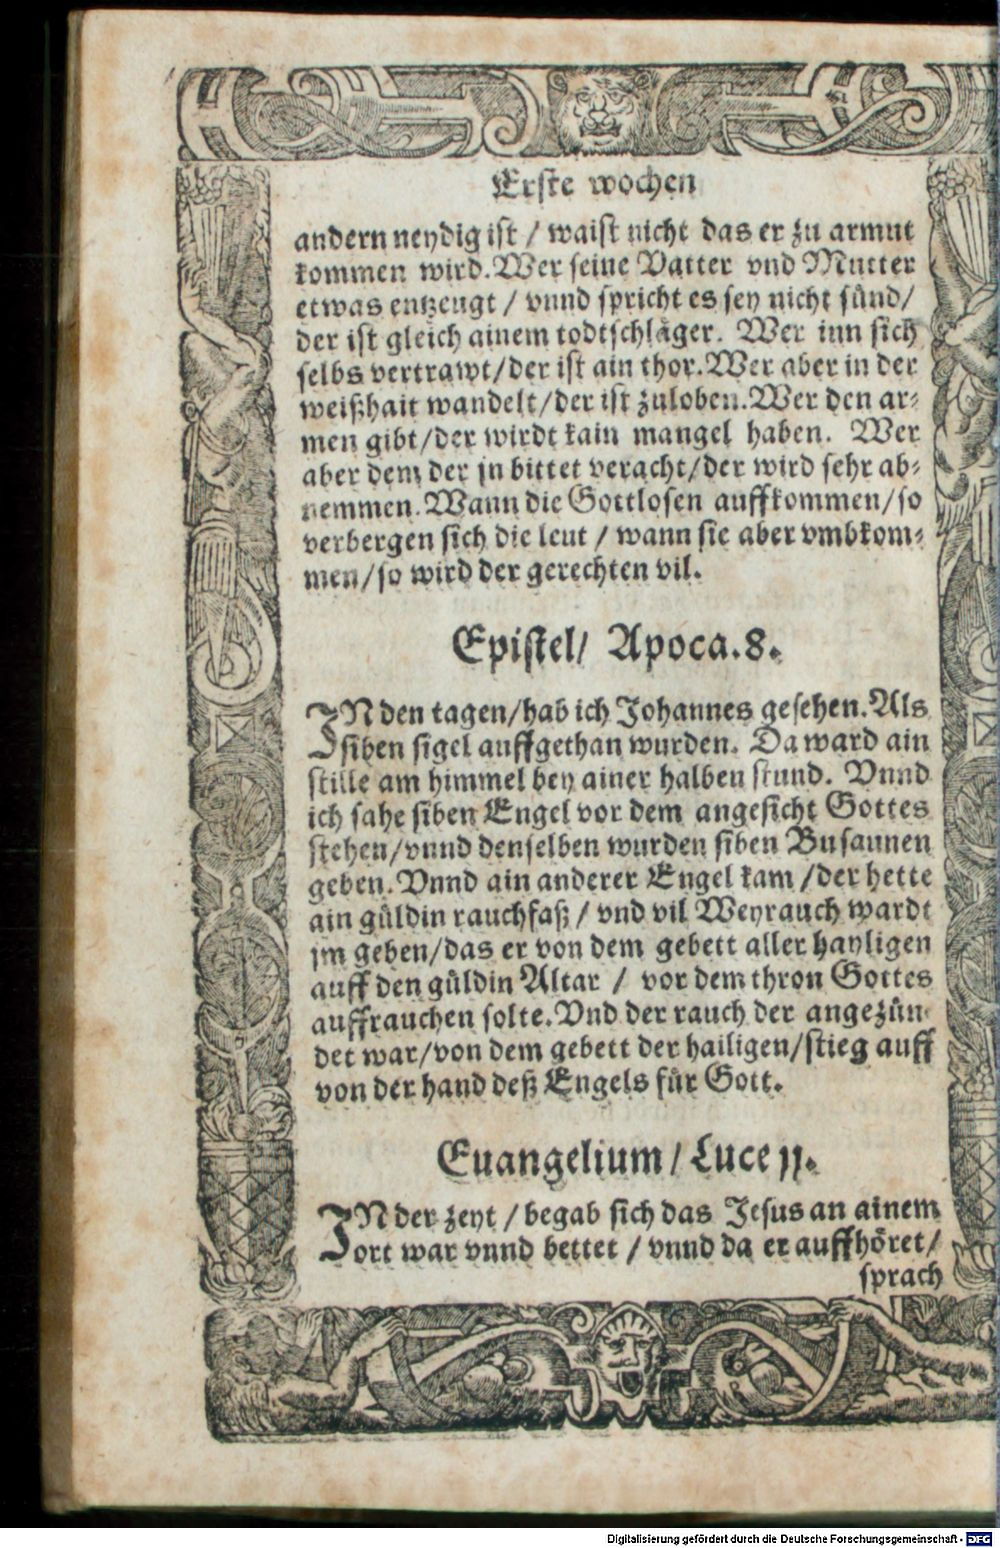 Erste wochen
andern neydig ist / waist nicht das er zu armut
kommen wird. Wer seine Vatter vnd Mutter
etwas entzeugt / vnnd spricht es sey nicht sünd /
der ist gleich ainem todtschläger. Wer inn sich
selbs vertrawt / der ist ain thor. Wer aber in der
weißhait wandelt / der ist zuloben. Wer den ar⸗
men gibt / der wirdt kain mangel haben. Wer
aber dem der jn bittet veracht / der wird sehr ab⸗
nemmen. Wann die Gottlosen auffkommen / so
verbergen sich die leut / wann sie aber vmbkom⸗
men / so wird der gerechten vil.
Epistel / Apoca. 8.
IN den tagen / hab ich Johannes gesehen. Als
siben sigel auffgethan wurden. Da ward ain
stille am himmel bey ainer halben stund. Vnnd
ich sahe siben Engel vor dem angesicht Gottes
stehen / vnnd denselben wurden siben Busaunen
geben. Vnnd ain anderer Engel kam / der hette
ain güldin rauchfaß / vnd vil Weyrauch wardt
jm geben / das er von dem gebett aller hayligen
auff den güldin Altar / vor dem thron Gottes
auffrauchen solte. Vnd der rauch der angezün⸗
det war / von dem gebett der hailigen / stieg auff
von der hand deß Engels für Gott.
Euangelium / Luce 11.
IN der zeyt / begab sich das Jesus an ainem
ort war vnnd bettet / vnnd da er auffhöret /
sprach
Digitalisierung gefördert durch die Deutsche Forschungsgemeinschaft - DFG